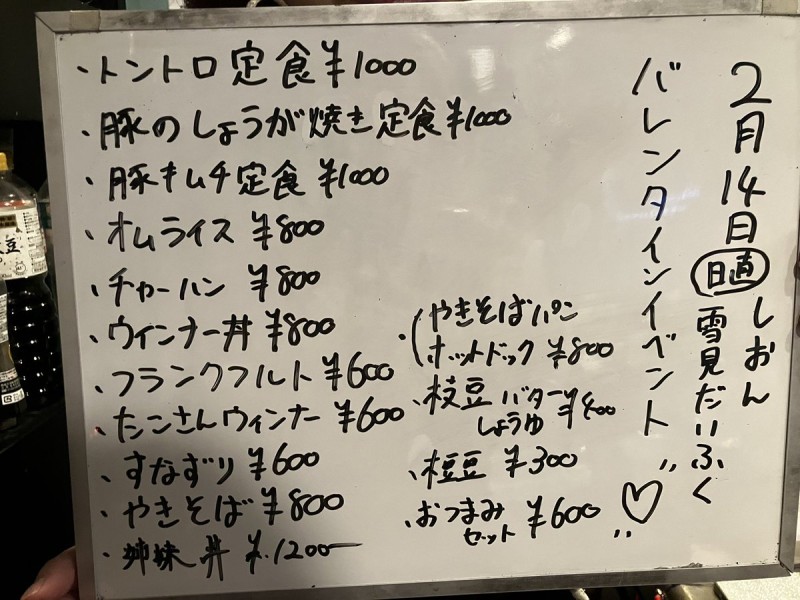 2月14日 しおん
日直 雪見だいふく
バレンタインイベント"♡"
・トントロ定食 ¥1000
・豚のしょうが焼き定食 ¥1000
・豚キムチ定食 ¥1000
・オムライス ¥800
・チャーハン ¥800
・ウィンナー丼 ¥800
・フランクフルト ¥600
・たこさんウィンナー ¥600
・すなずり ¥600
・やきそば ¥800
・姉妹丼 ¥1200
・(やきそばパン
ホットドック ¥800
・枝豆 バターしょうゆ ¥400
・枝豆 ¥300
・おつまみセット ¥600